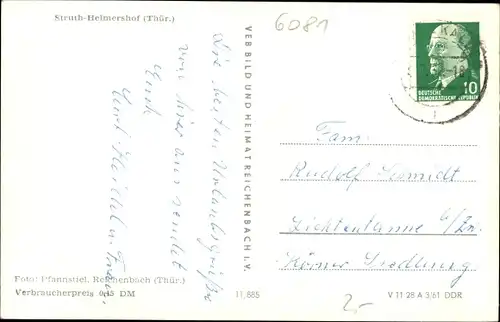 Struth-Helmershof (Thür.)
6081
Die besten Urlaubsgrüße
von hier aus sendet
Euch
Heidel u. Frau.
VEB BILD UND HEIMAT REICHENBACH I. V.
DEUTSCHE
DEMOKRATISCHE REPUBLIK
10
Fam.
Rudolf Schmidt
Lichtentanne b/Zw.
Körner Siedlung
Foto: Pfannstiel, Reichenbach (Thür.)
Verbraucherpreis 0,15 DM
11,885
2,-
V 11 28 A 3/61 DDR